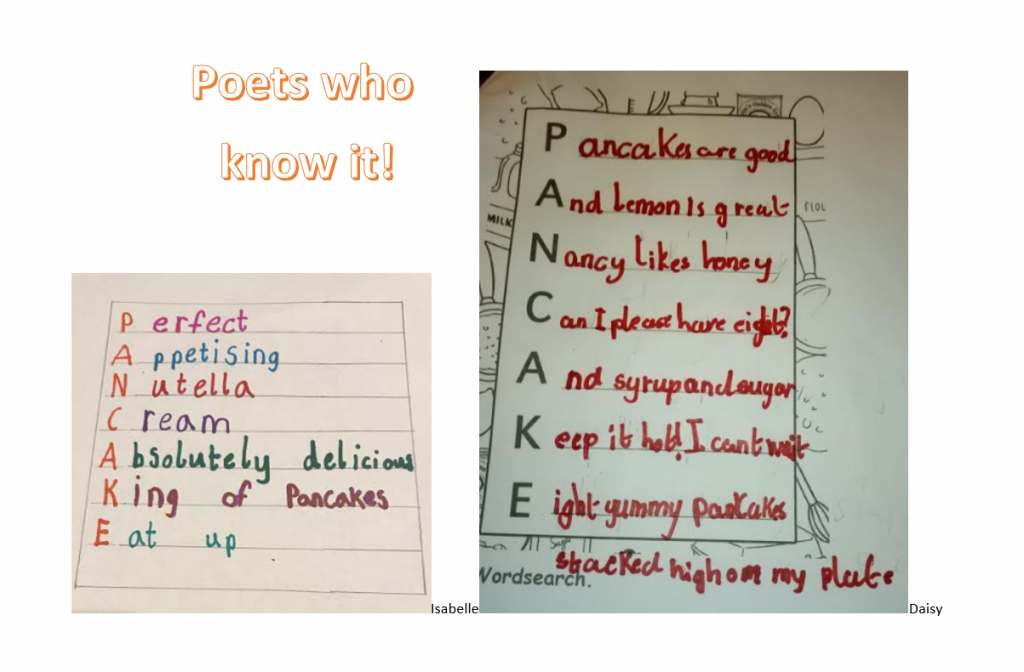 Poets who
know it!
Perfect
Appetising
Nutella
Cream
Absolutely delicious
King of Pancakes
Eat up
Isabelle
Pancakes are good
And lemon is great
Nancy likes honey
Can I please have eight?
And syrup and sugar
Keep it hot! I cant wait
Eight yummy pancakes
stacked high on my plate
MILK
FLOU
Wordsearch.
Daisy